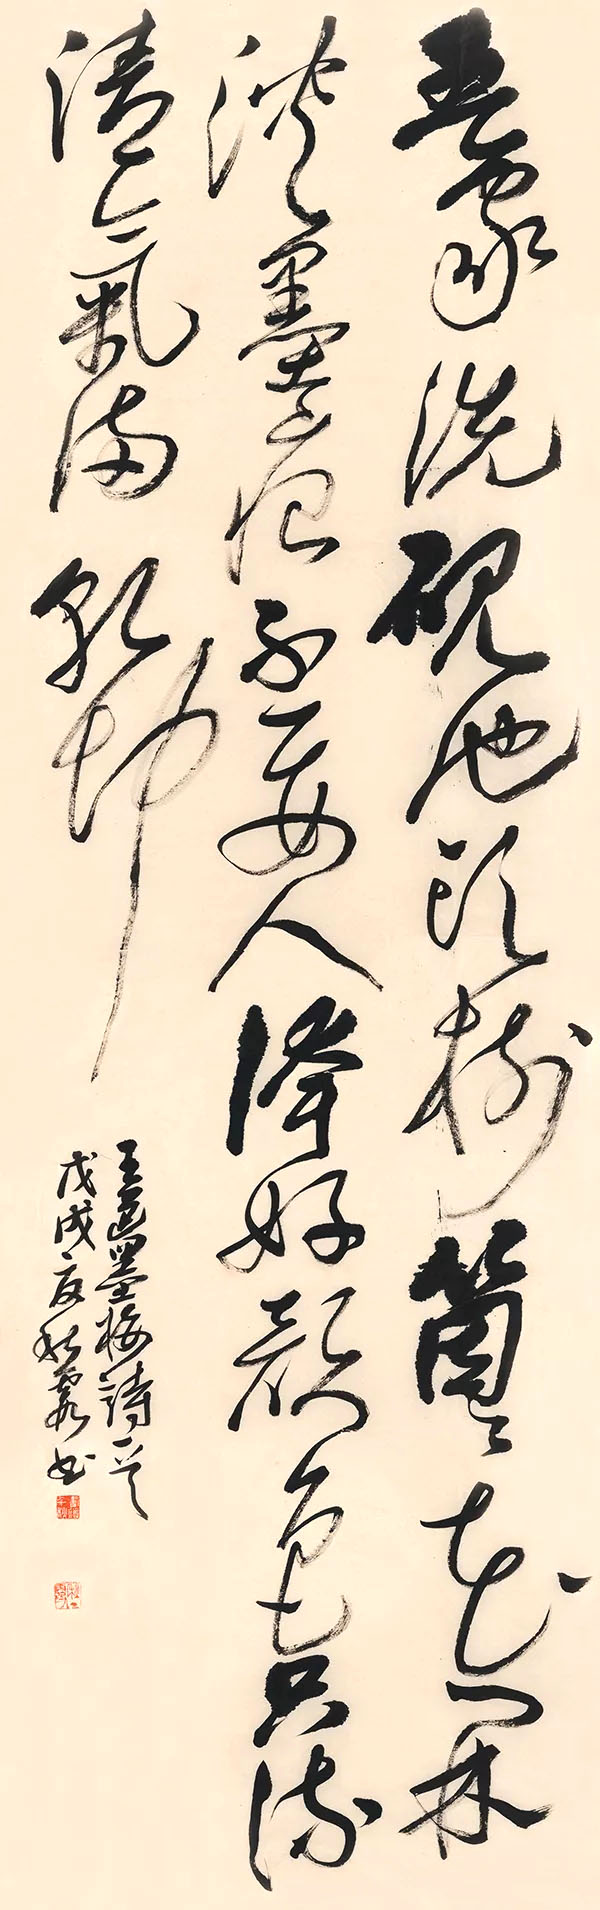 吾家洗硯池頭樹箇箇花開
淡墨痕不要人誇好顏色只流
清氣滿乾坤
王冕墨梅詩一首
戊戌夏秋霞书